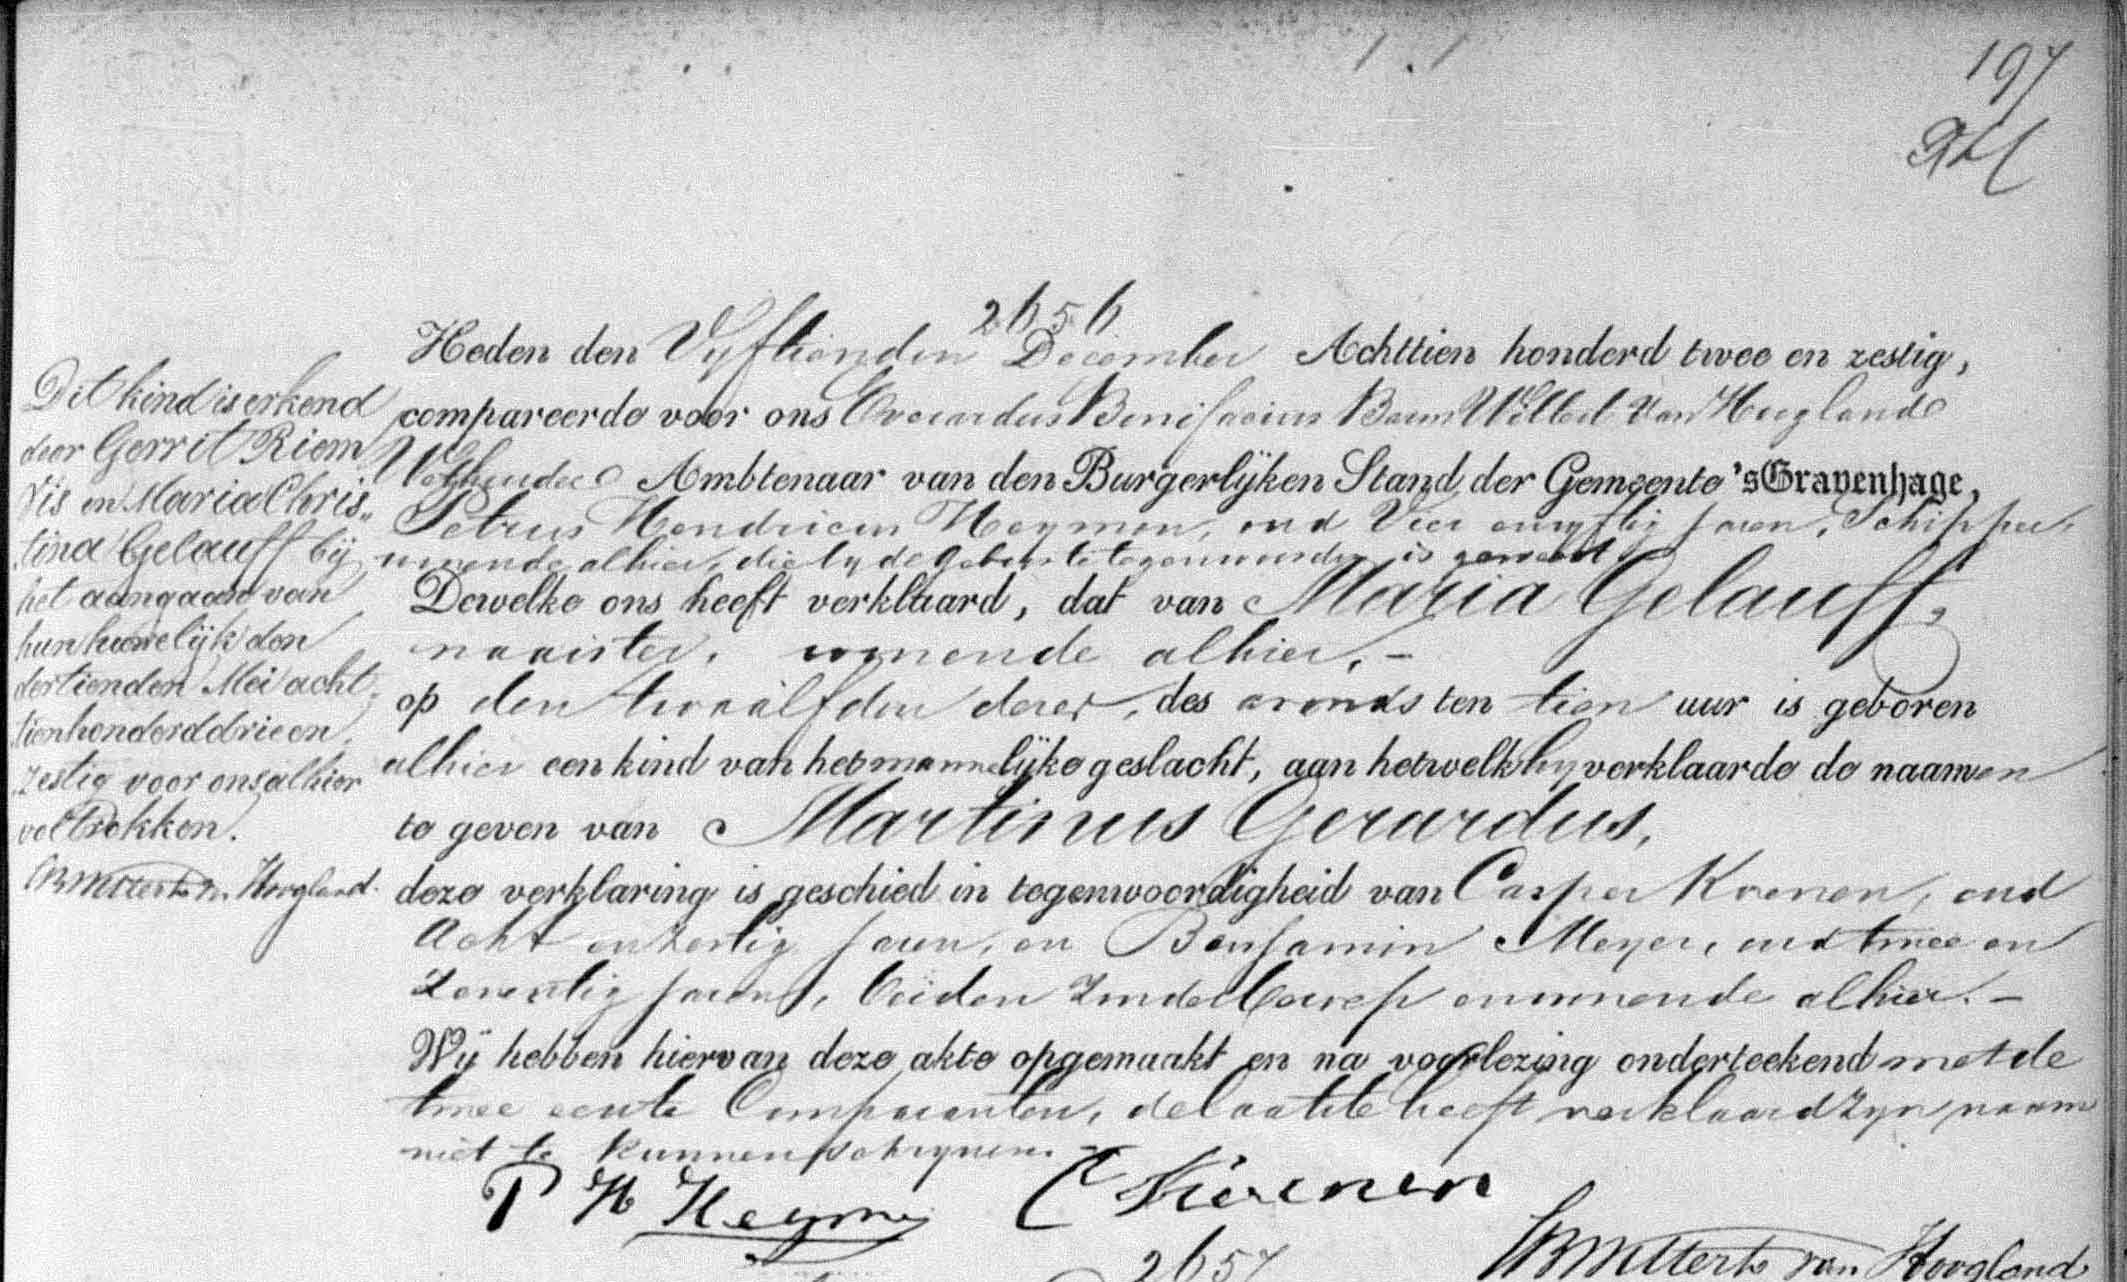 197
2656
Heden den Vyftienden December Achttien honderd twee en zestig,
compareerde voor ons Everardus Bonifacius Baron Wittert van Hoogland
Wethouder Ambtenaar van den Burgerlijken Stand der Gemeente 's Gravenhage,
Petrus Hendricus Heymen, oud Vier en vyftig jaren, Schipper,
wonende alhier, die by de geboorte tegenwoordig is geweest
Dewelke ons heeft verklaard, dat van Maria Gelauff,
naaister, wonende alhier, –
op den twaalfden dezer, des avonds ten tien uur is geboren
alhier een kind van het mannelijke geslacht, aan hetwelk hy verklaarde de naamen
te geven van Martinus Gerardus,
deze verklaring is geschied in tegenwoordigheid van Casper Koenen, oud
Acht en zestig jaren, en Benjamin Meyer, oud twee en
zeventig jaren, beiden zonder beroep en wonende alhier. –
Wij hebben hiervan deze akte opgemaakt en na voorlezing onderteekend met de
twee eerste Comparanten, de laatste heeft verklaard zyn naam
niet te kunnen schryven. –
P H Heymen C Koenen
2657
EBWittert van Hoogland
Dit kind is erkend
door Gerrit Riem
Vis en Maria Chris„
tina Gelauff bij
het aangaan van
hun huwelijk den
dertienden Mei acht„
tienhonderd drie en
zestig voor ons alhier
voltrokken.
EBWittert v. Hoogland.